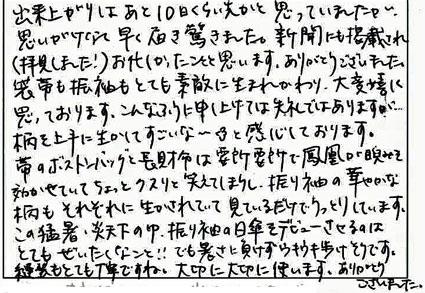 出来上がりはあと10日くらい先かと思っていましたが、
思いがけなく早く届き驚きました。新聞にも掲載され
(拝見しました!)お忙しかったことと思います。ありがとうございました。
袋帯も振袖もとても素敵に生まれかわり、大変嬉しく
思っております。こんなふうに申し上げては失礼ではありますが…
柄を上手に生かしてすごいな〜と感じております。
帯のボストンバッグと長財布は要所要所で鳳凰が睨みを
効かせていてちょっとクスリと笑えてしまうし、振り袖の華やかな
柄もそれぞれに生かされていて見ているだけでうっとりしています。
この猛暑、炎天下の中、振り袖の日傘をデビューさせるのは
とてもぜいたくなこと!!でも暑さに負けずウキウキ歩けそうです。
縫製もとても丁寧ですね。大切に大切に使います。ありがとう
ございました。